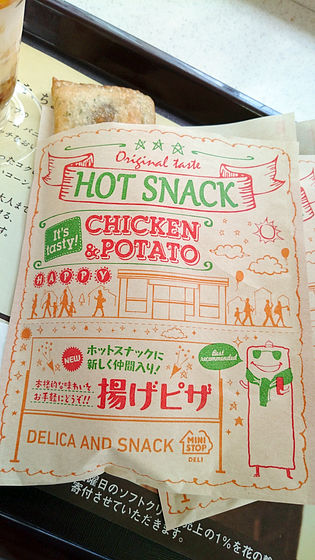 Original taste
HOT SNACK
It's tasty!
CHICKEN
& POTATO
HAPPY
NEW
ホットスナックに
新しく仲間入り!
本格的な味わいを、
お手軽にどうぞ!!
揚げピザ
Best recommended
DELICA AND SNACK
MINI STOP
DELI
曜日のソフトクリ
売上の1%を花の
寄付させていただきます。